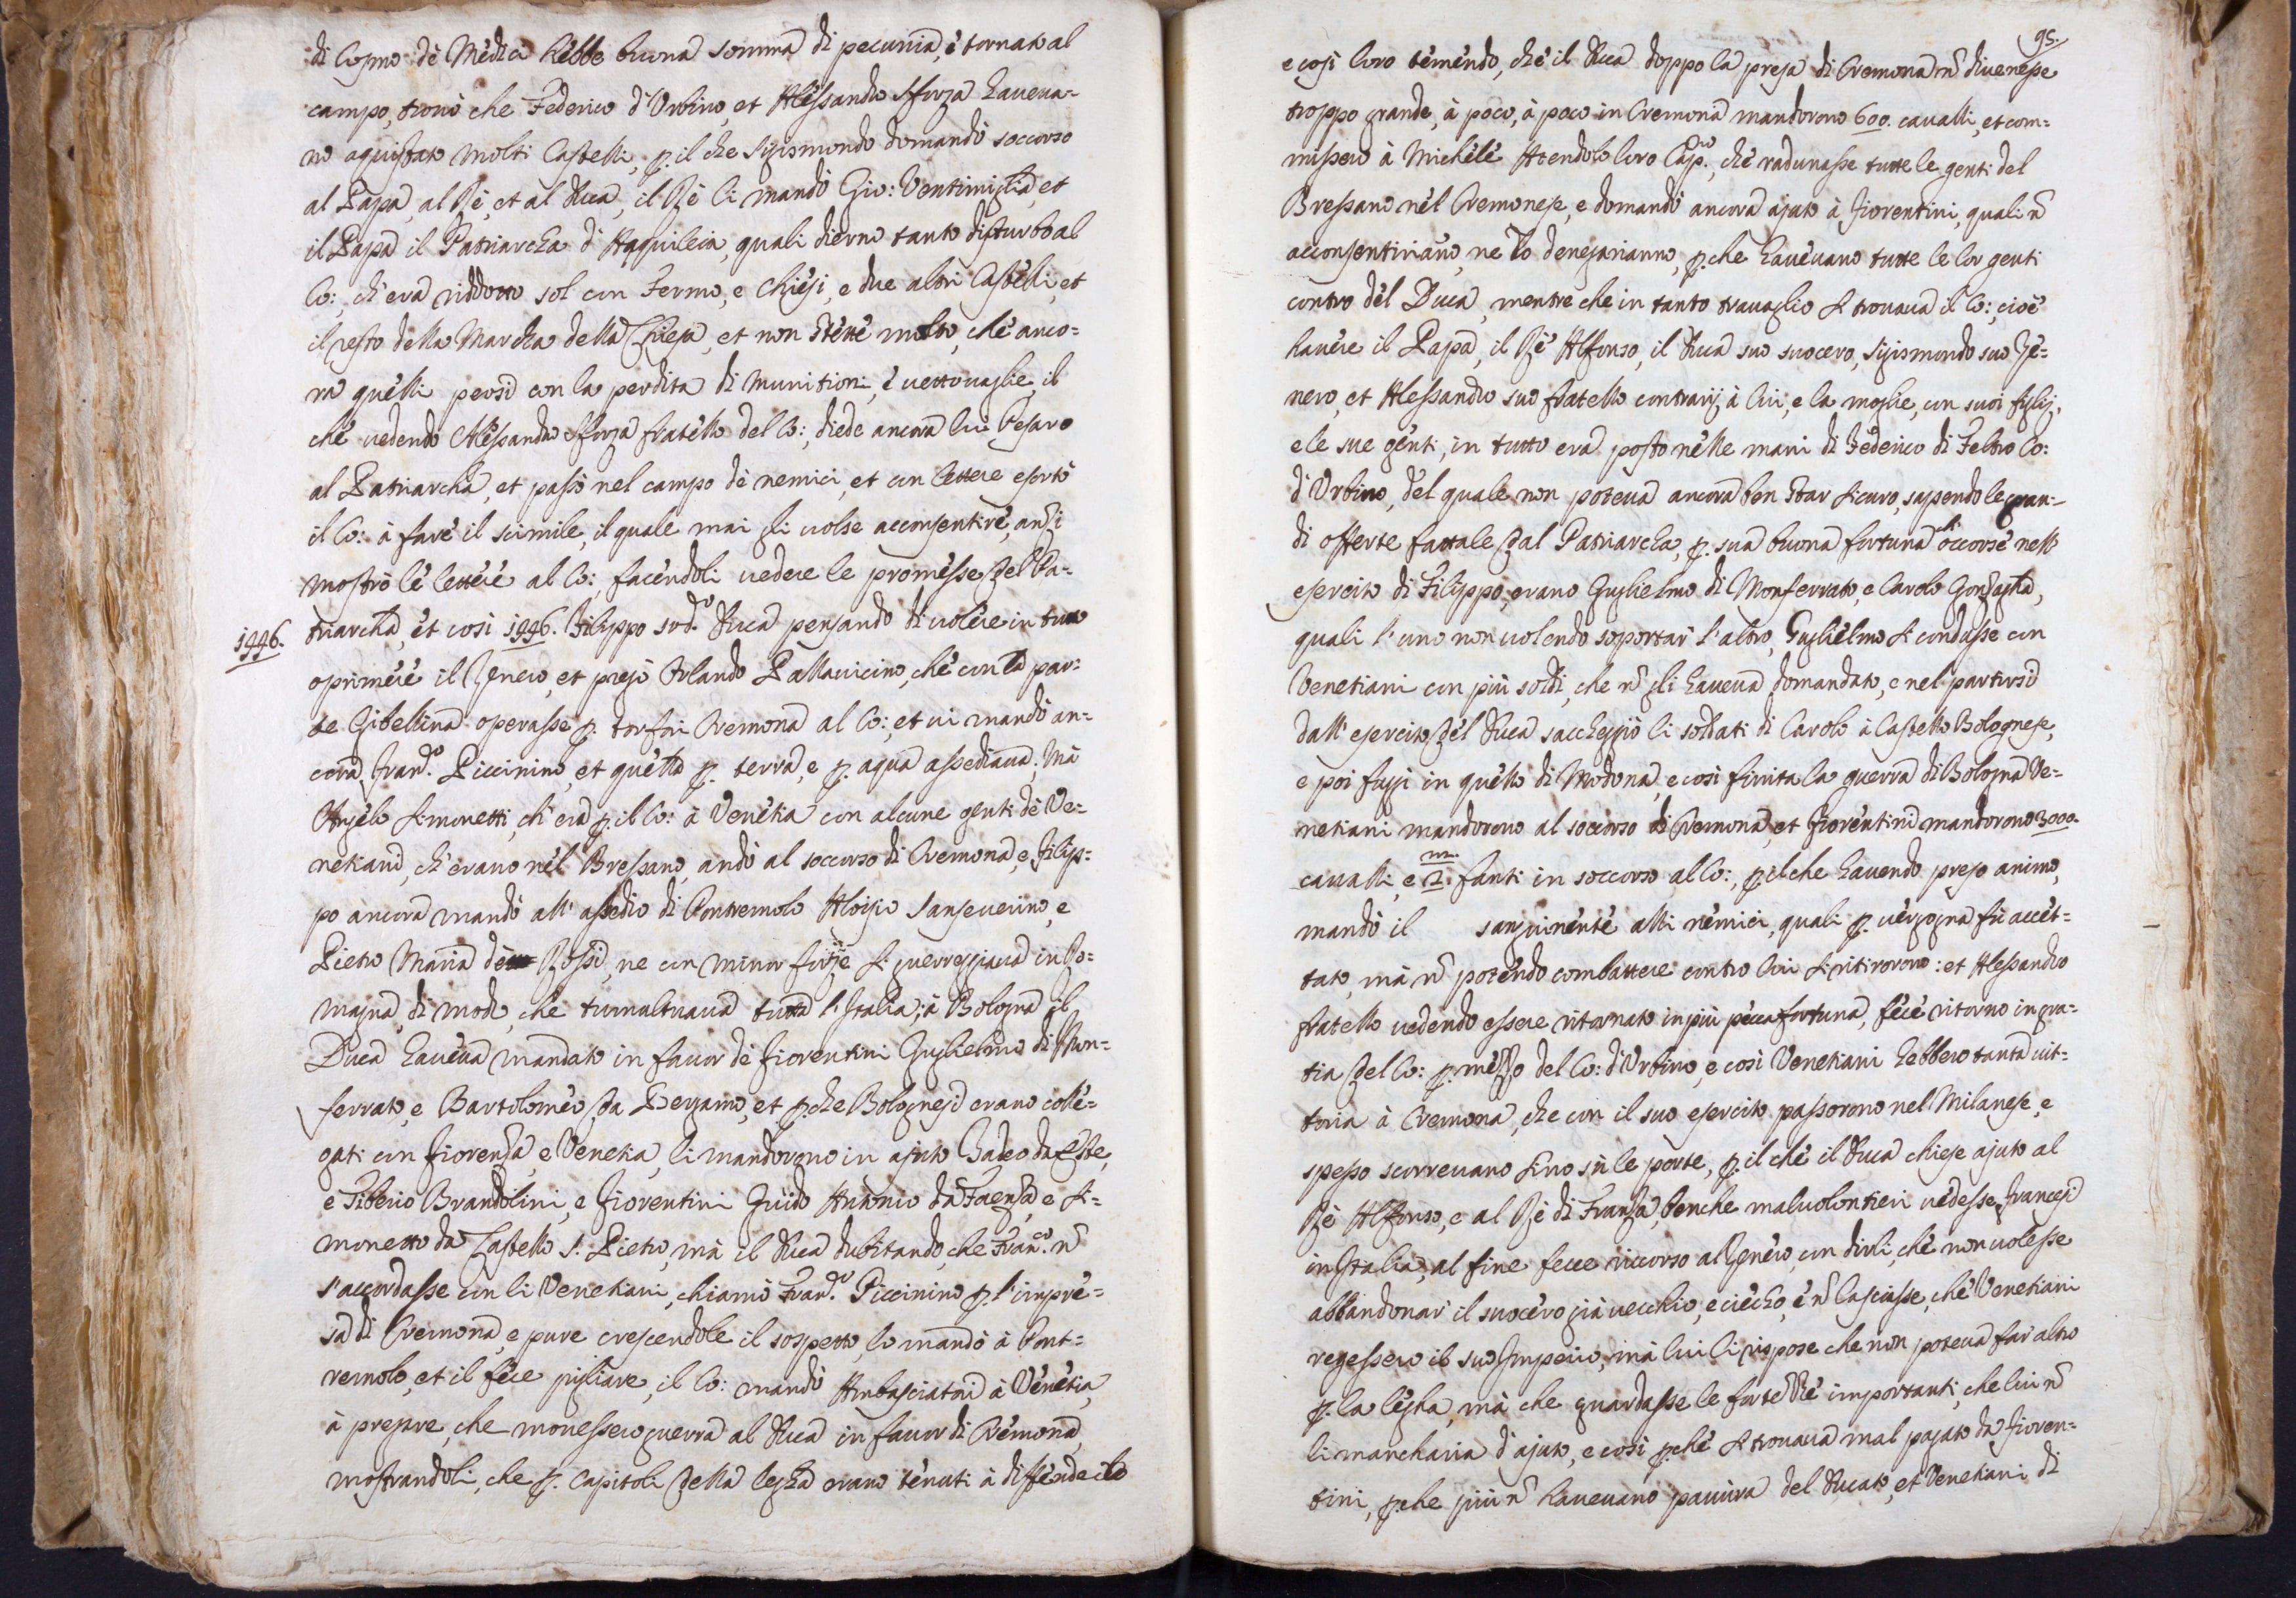 di Cosmo dè Medici hebbe buona somma di pecunia, è tornato al
campo, trovò che Federico d'Urbino, et Alessandro Sforza haveva=
no aquistato molti Castelli, p. il che Sigismondo domandò soccorso
al Papa, al Rè, et al Duca, il Rè li mandò Gio: Ventimiglia, et
il Papa il Patriarcha d'Aquileia, quali dierno tanto disturbo al
Co:, ch'era riddotto sol con Fermo, e Chiesi, e due altri Castelli, et
il resto della Marcha della Chiesa, et non stette molto, che anco=
ra quelli persi con la perdita di munitioni, è vettovaglie, il
che vedendo Alessandro Sforza fratello del Co:, diede ancora lui Pesaro
al Patriarcha, et passò nel campo dè nemici, et con lettere esortò
il Co: à fare il scimile, il quale mai gli volse acconsentire, anzi
mostrò le lettere al Co:, facendoli vedere le promesse del Pa=
triarcha, et così 1446. Filippo sud.º Duca pensando di volere in tutto
1446.
oprimere il Genero, et pregò Orlando Pallavicino, che con la par=
te Gibellina operasse p. torfori Cremona al Co:, et vi mandò an=
cora Fran.º Piccinino, et quella p. terra, e p. aqua assediava, Mà
Angelo Simonetti, ch'era p. il Co: à Venetia con alcune genti dè Ve=
netiani, ch'erano nel Bressano, andò al soccorso di Cremona, e Filip=
po ancora mandò all'assedio di Pontremolo Aloisio Sanseverino, e
Pietro Maria dè Rossi, ne con minor forze si guerreggiava in Ro=
magna, di modo, che tumaltuava tutta l'Italia; à Bologna il
Duca haveva mandato in favor dè Fiorentini Guglielmo di Mon=
ferrato, e Bartolomeo da Bergamo, et p.che Bolognesi erano colle=
gati con Fiorenza, e Venetia, li mandorono in ajuto Tadeo da Este,
e Tiberio Brandolini, e Fiorentini Guido Antonio da Faenza, e Si=
monetto da Castello S. Pietro, mà il Duca dubitando, che Fran.co n
s'accordasse con li Venetiani, chiamò Fran.º Piccinino p. l'impre=
sa di Cremona, e pure crescendole il sospetto, lo mandò à Pont=
remolo, et il fece pigliare, il Co: mandò Ambasciatori à Venetia,
à pregare, che movessero guerra al Duca in favor di Cremona,
mostrandoli, che p. Capitoli della legha erano tenuti à diffenderlo
95.
e così loro temendo, che il Duca doppo la presa di Cremona n divenesse
troppo grande, à poco, à poco in Cremona mandorono 600. cavalli, et com=
missero à Michele Atendolo loro Cap.no, che radunasse tutte le genti del
Bressano nel Cremonese, e domandò ancora ajuto à Fiorentini, quali n
acconsentiriano, ne lo denegarianno, p.che havevano tutte le lor genti
contro del Duca, mentre che in tanto travaglio si trovava il Co:, cioè
havere il Papa, il Rè Alfonso, il Duca suo suocero, Sigismondo suo Ge=
nero, et Alessandro suo fratello contrarij, à lui, e la moglie, con suoi figlij,
e le sue genti, in tutto era posto nelle mani di Federico di Feltro Co:
d'Urbino, del quale non poteva ancora ben star sicuro, sapendo le gran=
di offerte fattale dal Patriarcha, p. sua buona fortuna li occorse nell
esercito di Filippo, erano Guglielmo di Monferrato, e Carolo Gonzagha,
quali l'uno non volendo soportar l'altro, Guglielmo si condusse con
Venetiani con più soldi, che n gli haveva domandato, e nel partirsi
dall'esercito del Duca saccheggiò li soldati di Carolo à Castello Bolognese,
e poi fuggì in quello di Modona, e così finita la guerra di Bologna Ve=
netiani mandorono al soccorso di Cremona, et Fiorentini mandorono 3000.
cavalli, e 2.m fanti in soccorso al Co:, p. il che havendo preso animo,
mandò il sanguinente alli nemici, quali p. vergogna fù accet=
tato, mà n potendo combattere contro lui si ritirorono: et Alessandro
fratello vedendo essere ritornato in più fortuna, fece ritorno in gra=
tia del Co: p. mezzo del Co: d'Urbino, e così Venetiani hebbero tanta vit=
toria à Cremona, che con il suo esercito passorono nel Milanese, e
spesso scorrevano sino sù le porte, p. il che il Duca chiese ajuto al
Rè Alfonso, e al Rè di Franza, benche malvolontieri vedesse Francesi
in Italia, al fine fece riccorso al Genero, con dirli, che non volesse
abbandonar il suocero già vecchio, e ciecho, è n lasciasse, che Venetiani
regessero il suo Imperio, mà lui li rispose che non poteva far altro
p. la legha, mà che guardasse le fortezze importanti, che lui n
li mancharia d'ajuto, e così p.che si trovava mal pagato da Fioren=
tini, p.che più n havevano pavura del Ducato, et Venetiani di